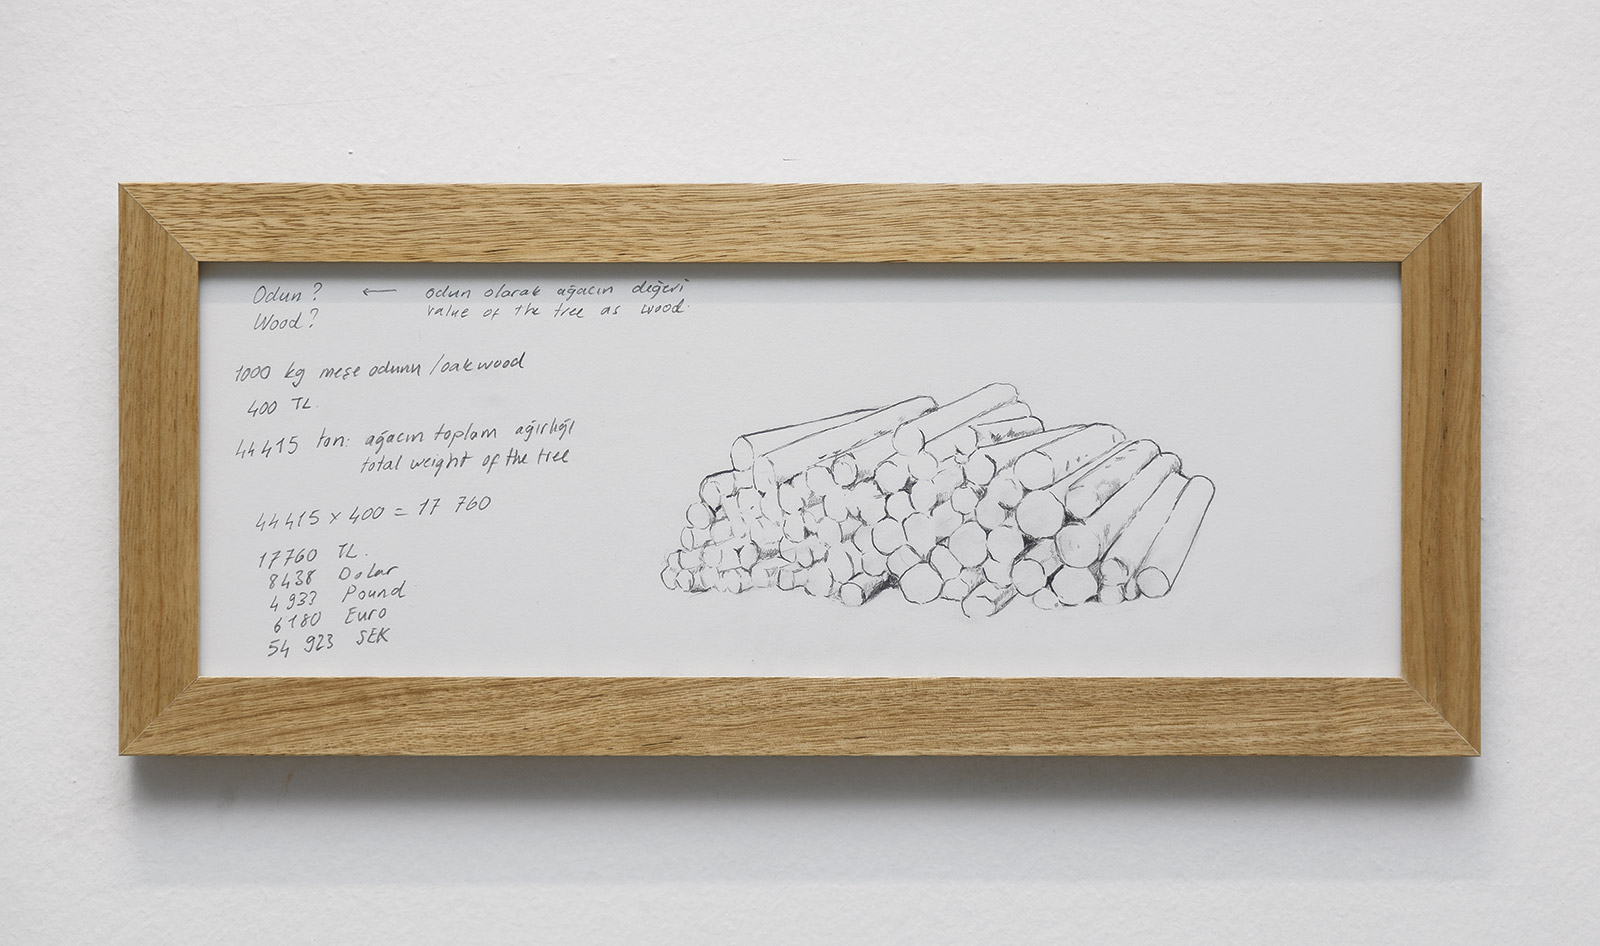 Odun? ← odun olarak ağacın değeri
Wood? value of the tree as wood.
1000 kg meşe odunu / oakwood
400 TL.
44415 ton: ağacın toplam ağırlığı
total weight of the tree
44415 x 400 = 17 760
17760 TL.
8438 Dolar
4 933 Pound
6180 Euro
54 923 SEK